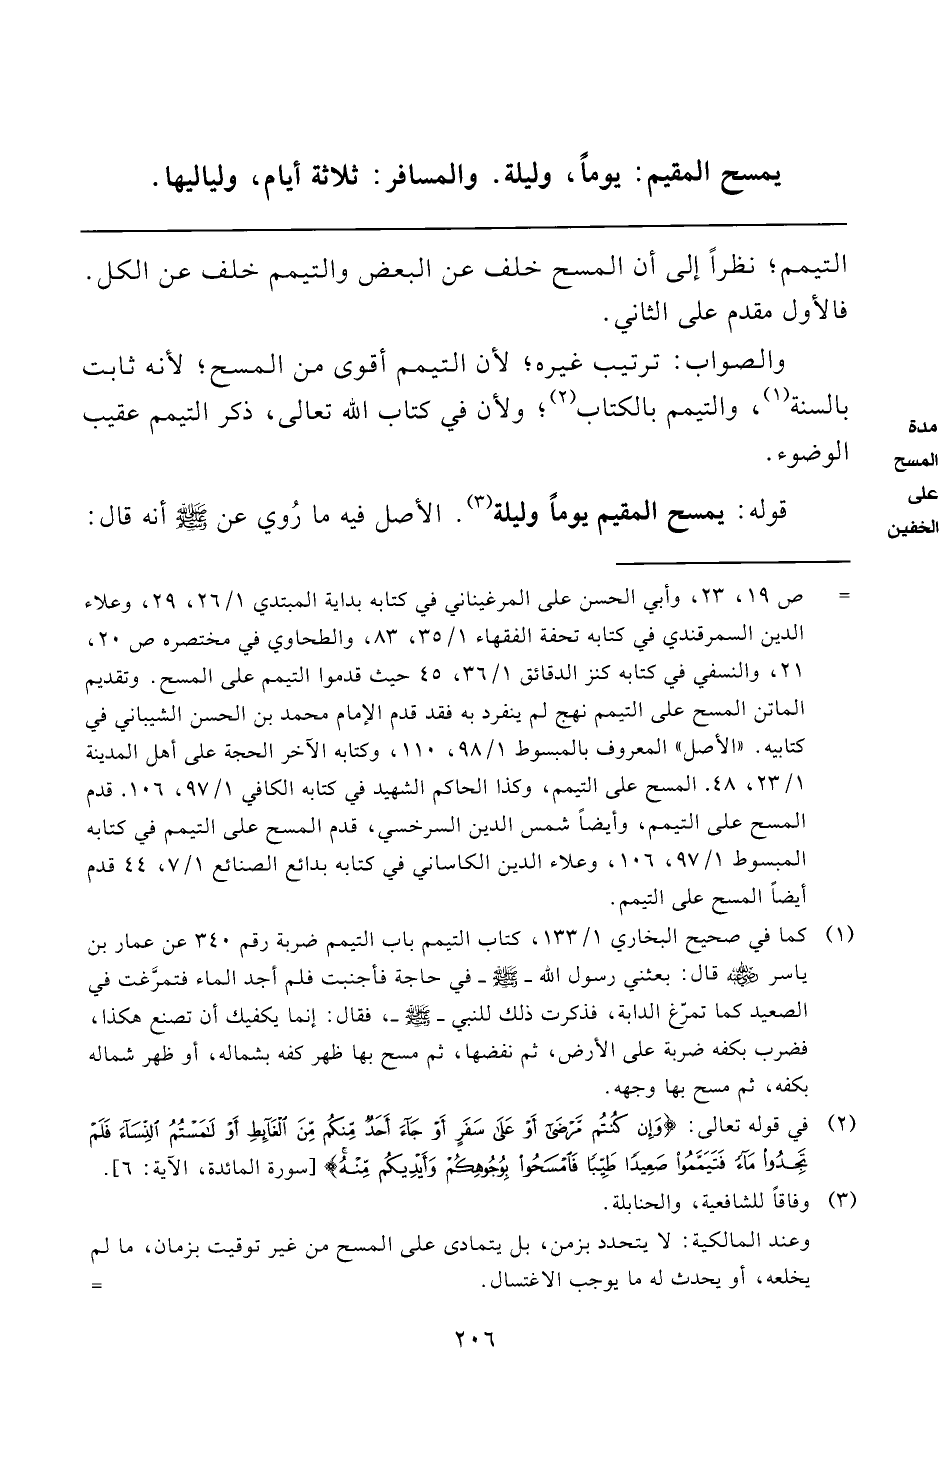 يمسح المقيم: يوماً، وليلة. والمسافر: ثلاثة أيام، ولياليها.
التيمم؛ نظراً إلى أن المسح خلف عن البعض والتيمم خلف عن الكل.
فالأول مقدم على الثاني.
والصواب: ترتيب غيره؛ لأن التيمم أقوى من المسح؛ لأنه ثابت
بالسنة(١)، والتيمم بالكتاب(٢)؛ ولأن في كتاب الله تعالى، ذكر التيمم عقيب
الوضوء.
مدة
المسح
على
الخفين
قوله: يمسح المقيم يوماً وليلة(٣). الأصل فيه ما رُوي عن ﷺ أنه قال:
= ص ١٩، ٢٣، وأبي الحسن على المرغيناني في كتابه بداية المبتدي ٢٦/١، ٢٩، وعلاء
الدين السمرقندي في كتابه تحفة الفقهاء ٣٥/١، ٨٣، والطحاوي في مختصره ص ٢٠،
٢١، والنسفي في كتابه كنز الدقائق ٣٦/١، ٤٥ حيث قدموا التيمم على المسح. وتقديم
الماتن المسح على التيمم نهج لم ينفرد به فقد قدم الإمام محمد بن الحسن الشيباني في
كتابيه. «الأصل» المعروف بالمبسوط ٩٨/١، ١١٠، وكتابه الآخر الحجة على أهل المدينة
٢٣/١، ٤٨. المسح على التيمم، وكذا الحاكم الشهيد في كتابه الكافي ٩٧/١، ١٠٦. قدم
المسح على التيمم، وأيضاً شمس الدين السرخسي، قدم المسح على التيمم في كتابه
المبسوط ٩٧/١، ١٠٦، وعلاء الدين الكاساني في كتابه بدائع الصنائع ٧/١، ٤٤ قدم
أيضاً المسح على التيمم.
(١) كما في صحيح البخاري ١٣٣/١، كتاب التيمم باب التيمم ضربة رقم ٣٤٠ عن عمار بن
ياسر رضي الله عنه قال: بعثني رسول الله ـ ﷺ ـ في حاجة فأجنبت فلم أجد الماء فتمرَّغت في
الصعيد كما تمرّغ الدابة، فذكرت ذلك للنبي ـ ﷺ ـ، فقال: إنما يكفيك أن تصنع هكذا،
فضرب بكفه ضربة على الأرض، ثم نفضها، ثم مسح بها ظهر كفه بشماله، أو ظهر شماله
بكفه، ثم مسح بها وجهه.
(٢) في قوله تعالى: ﴿وَإِن كُنتُم مَّرْضَىٰٓ أَوْ عَلَىٰ سَفَرٍ أَوْ جَآءَ أَحَدٌ مِّنكُم مِّنَ ٱلْغَآئِطِ أَوْ لَـٰمَسْتُمُ ٱلنِّسَآءَ فَلَمْ
تَجِدُوا۟ مَآءً فَتَيَمَّمُوا۟ صَعِيدًا طَيِّبًا فَٱمْسَحُوا۟ بِوُجُوهِكُمْ وَأَيْدِيكُم مِّنْهُ﴾ [سورة المائدة، الآية: ٦].
(٣) وفاقاً للشافعية، والحنابلة.
وعند المالكية: لا يتحدد بزمن، بل يتمادى على المسح من غير توقيت بزمان، ما لم
يخلعه، أو يحدث له ما يوجب الاغتسال. =
٢٠٦